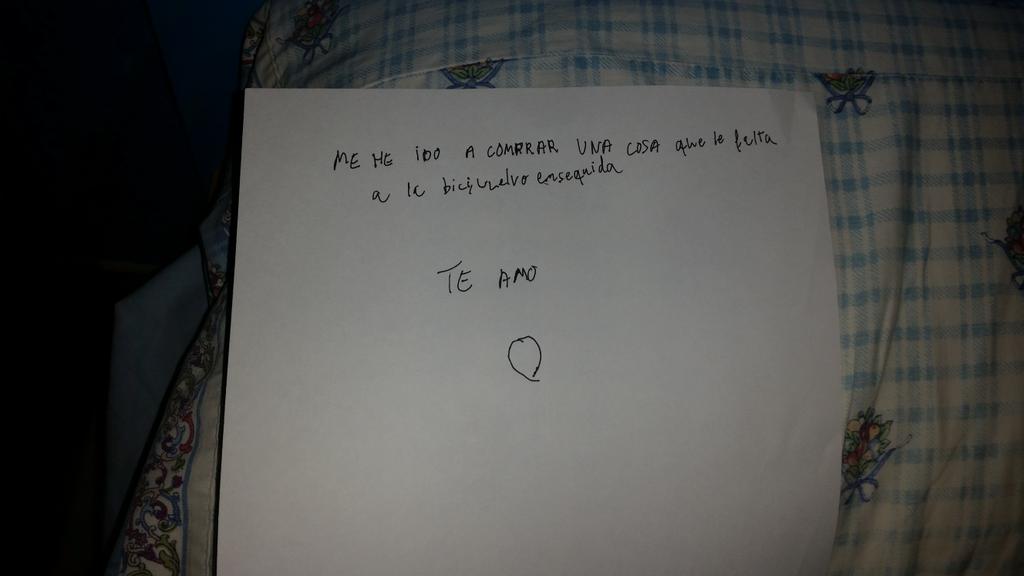 ME HE IDO A COMPRAR UNA COSA que le falta
a la bici, vuelvo enseguida
TE AMO